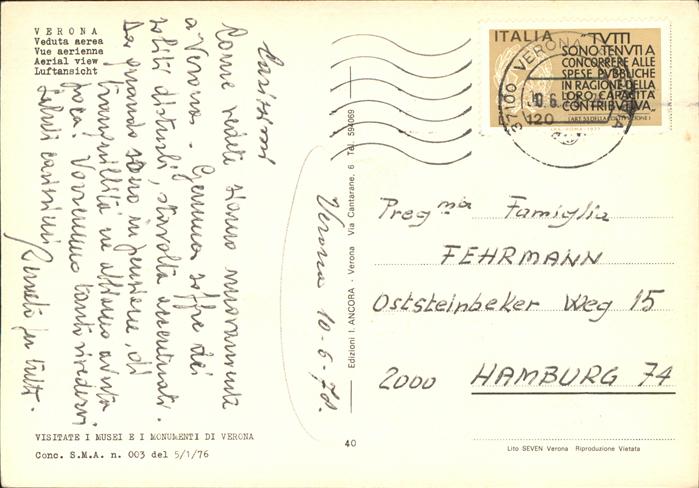 VERONA
Veduta aerea
Vue aerienne
Aerial view
Luftansicht
Carissimi
Come vedete siamo nuovamente
a Verona. Gemma soffre dei
soliti disturbi, stavolta accentuati.
Da quando sono in pensione, di
tranquillità ne abbiamo avuta
poca. Vorremmo tanto rivedervi.
Saluti carissimi
per tutti.
Verona 10-6-78.
VISITATE I MUSEI E I MONUMENTI DI VERONA
Conc. S.M.A. n. 003 del 5/1/76
Edizioni I. ANCORA - Verona Via Cantarane, 6 Tel. 594069
40
ITALIA
TUTTI
SONO TENUTI A
CONCORRERE ALLE
SPESE PUBBLICHE
IN RAGIONE DELLA
LORO CAPACITÀ
CONTRIBUTIVA.
120
37100 VERONA
10.6
Preg.ma Famiglia
FEHRMANN
Oststeinbeker Weg 15
2000 HAMBURG 74
Lito SEVEN Verona Riproduzione Vietata